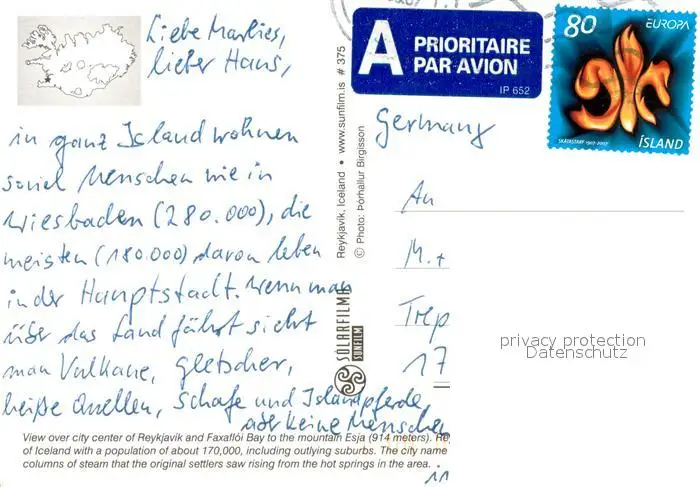 Liebe Marlies,
lieber Hans,
in ganz Island wohnen
soviel Menschen wie in
Wiesbaden (280.000), die
meisten (180.000) davon leben
in der Hauptstadt. Wenn man
über das Land fährt sieht
man Vulkane, Gletscher,
heiße Quellen, Schafe und Islandpferde,
aber keine Menschen
View over city center of Reykjavik and Faxaflói Bay to the mountain Esja (914 meters). Re
of Iceland with a population of about 170,000, including outlying suburbs. The city name
columns of steam that the original settlers saw rising from the hot springs in the area.
Reykjavík, Iceland • www.sunfilm.is # 375
© Photo: Þórhallur Birgisson
SÓLARFILMA
SUNFILM
A PRIORITAIRE
PAR AVION
IP 652
80 EUROPA
SKÁTASTARF 1907-2007
ÍSLAND
Germany
An
M.+
Trep
17
in
privacy protection
Datenschutz